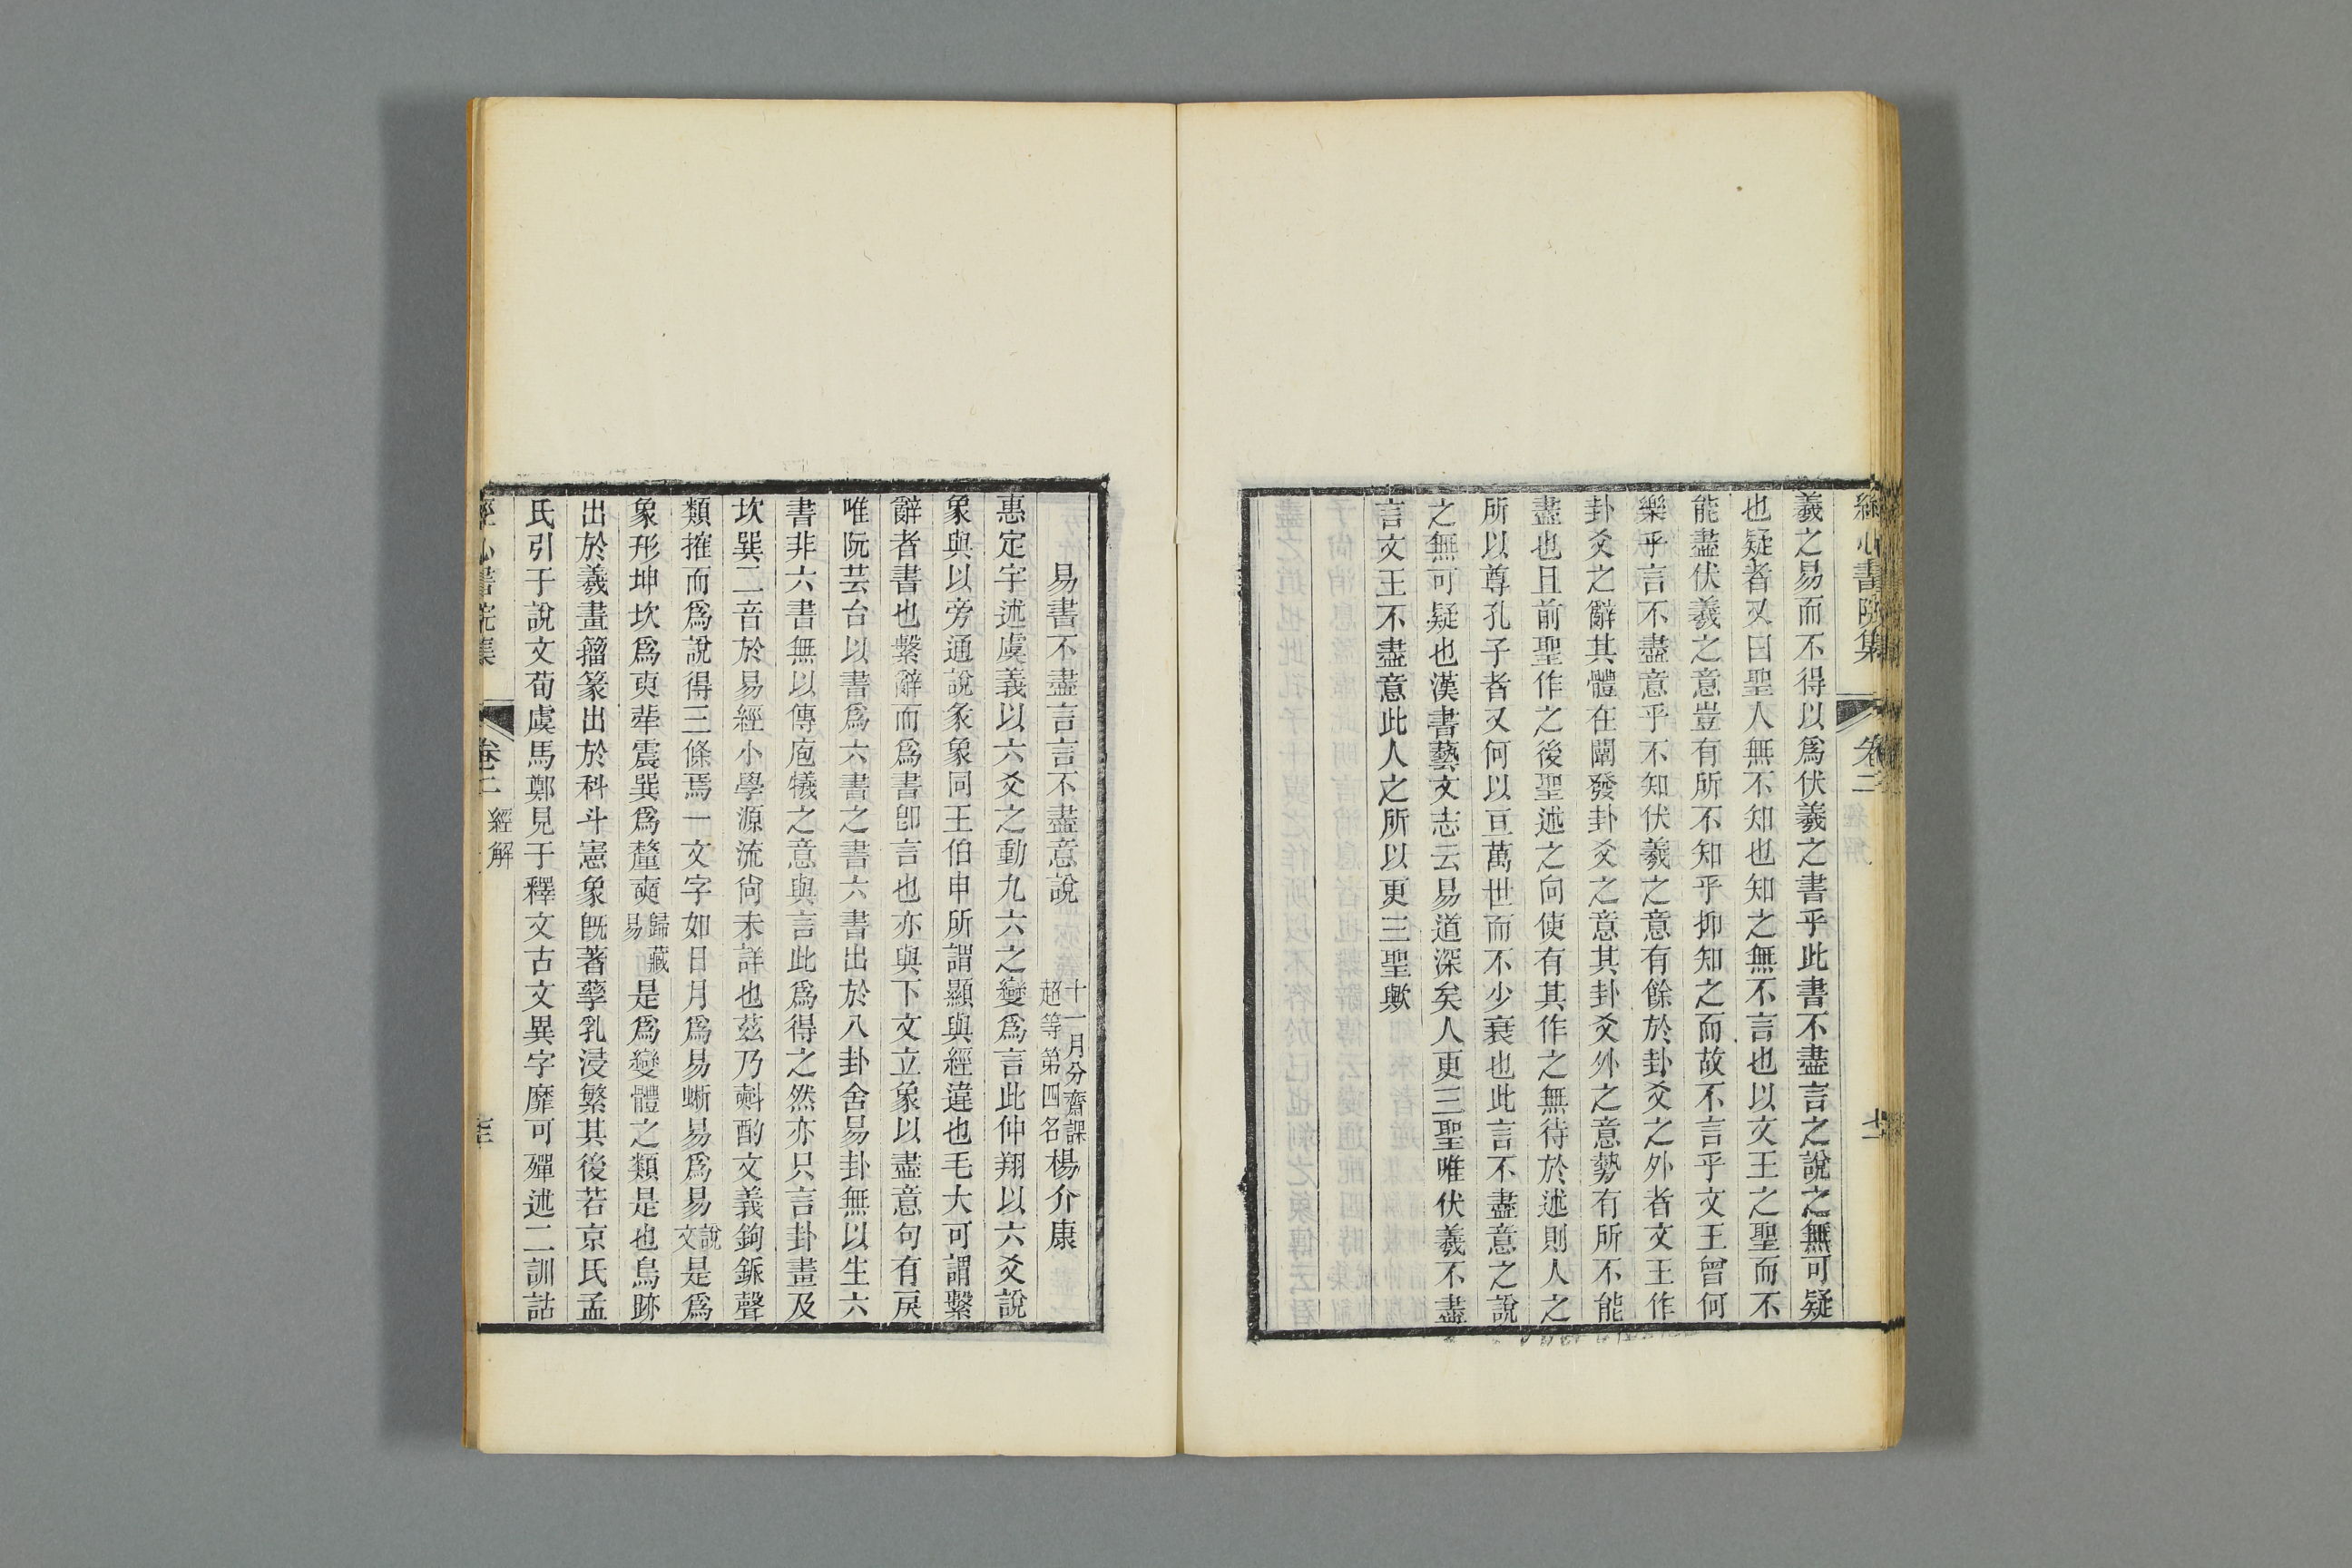 經心書院集
卷二
羲之易而不得以爲伏羲之書乎此書不盡言之說之無可疑
也疑者又曰聖人無不知也知之無不言也以文王之聖而不
能盡伏羲之意豈有所不知乎抑知之而故不言乎文王曾何
樂乎言不盡意乎不知伏羲之意有餘於卦爻之外者文王作
卦爻之辭其體在闡發卦爻之意其卦爻外之意勢有所不能
盡也且前聖作之後聖述之向使有其作之無待於述則人之
所以尊孔子者又何以亘萬世而不少衰也此言不盡意之說
之無可疑也漢書藝文志云易道深矣人更三聖唯伏羲不盡
言文王不盡意此人之所以更三聖歟
易書不盡言言不盡意說
十一月分齋課
超等第四名
楊介康
惠定宇述虞義以六爻之動九六之變爲言此仲翔以六爻說
象與以旁通說彖象同王伯申所謂顯與經違也毛大可謂繫
辭者書也繫辭而爲書卽言也亦與下文立象以盡意句有戾
唯阮芸台以書爲六書之書六書出於八卦舍易卦無以生六
書非六書無以傳庖犧之意與言此爲得之然亦只言卦畫及
坎巽二音於易經小學源流尙未詳也茲乃斟酌文義鉤鈲聲
類搉而爲說得三條焉一文字如日月爲易蜥易爲易說文是爲
象形坤坎爲㐪犖震巽爲釐奭歸藏易是爲變體之類是也鳥跡
出於羲畫籀篆出於科斗憲象旣著孳乳浸繁其後若京氏孟
氏引于說文荀虞馬鄭見于釋文古文異字靡可殫述二訓詁
經心書院集
卷二
經解